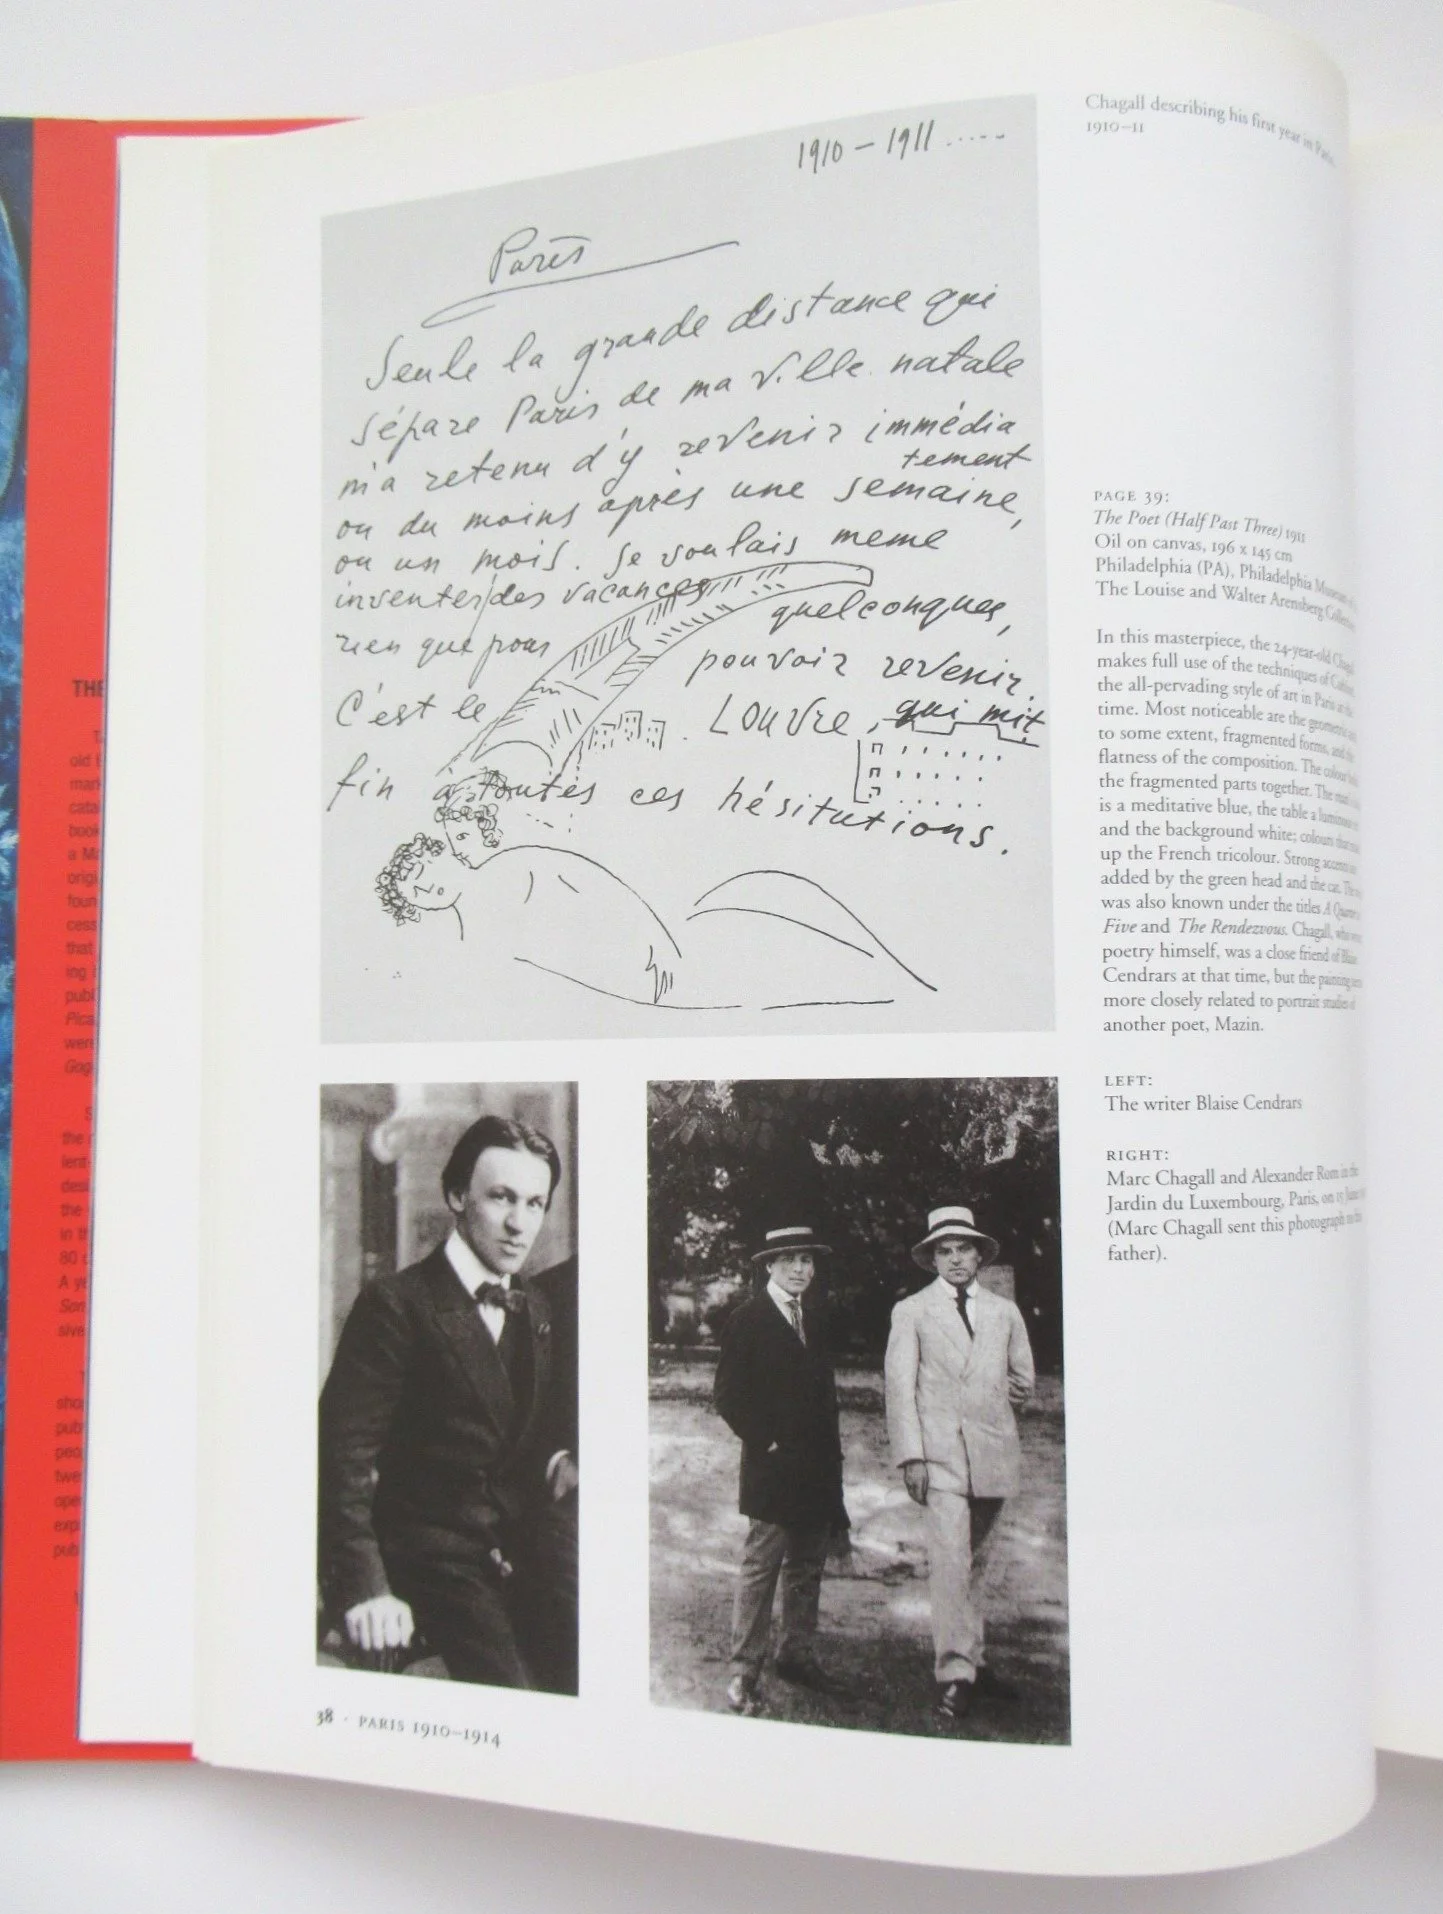 1910 – 1911 .....
Paris
Seule la grande distance qui
sépare Paris de ma ville natale
m'a retenu d'y revenir immédia
tement
ou du moins après une semaine,
ou un mois. Je voulais meme
inventer des vacances
quelconques,
rien que pour
pouvoir revenir.
C'est le
Louvre, qui mit
fin à toutes ces hésitutions.
Chagall describing his first year in Paris,
1910–11
PAGE 39:
The Poet (Half Past Three) 1911
Oil on canvas, 196 x 145 cm
Philadelphia (PA), Philadelphia Museum of
The Louise and Walter Arensberg Collection
In this masterpiece, the 24-year-old Chagall
makes full use of the techniques of
the all-pervading style of art in Paris at the
time. Most noticeable are the geometric and,
to some extent, fragmented forms, and the
flatness of the composition. The colour
the fragmented parts together. The
is a meditative blue, the table a luminous
and the background white; colours that
up the French tricolour. Strong accents
added by the green head and the cat. The
was also known under the titles A Quarter
Five and The Rendezvous. Chagall, who
poetry himself, was a close friend of Blaise
Cendrars at that time, but the painting
more closely related to portrait studies of
another poet, Mazin.
LEFT:
The writer Blaise Cendrars
RIGHT:
Marc Chagall and Alexander Rom in the
Jardin du Luxembourg, Paris, on
(Marc Chagall sent this photograph to his
father).
38 · PARIS 1910–1914